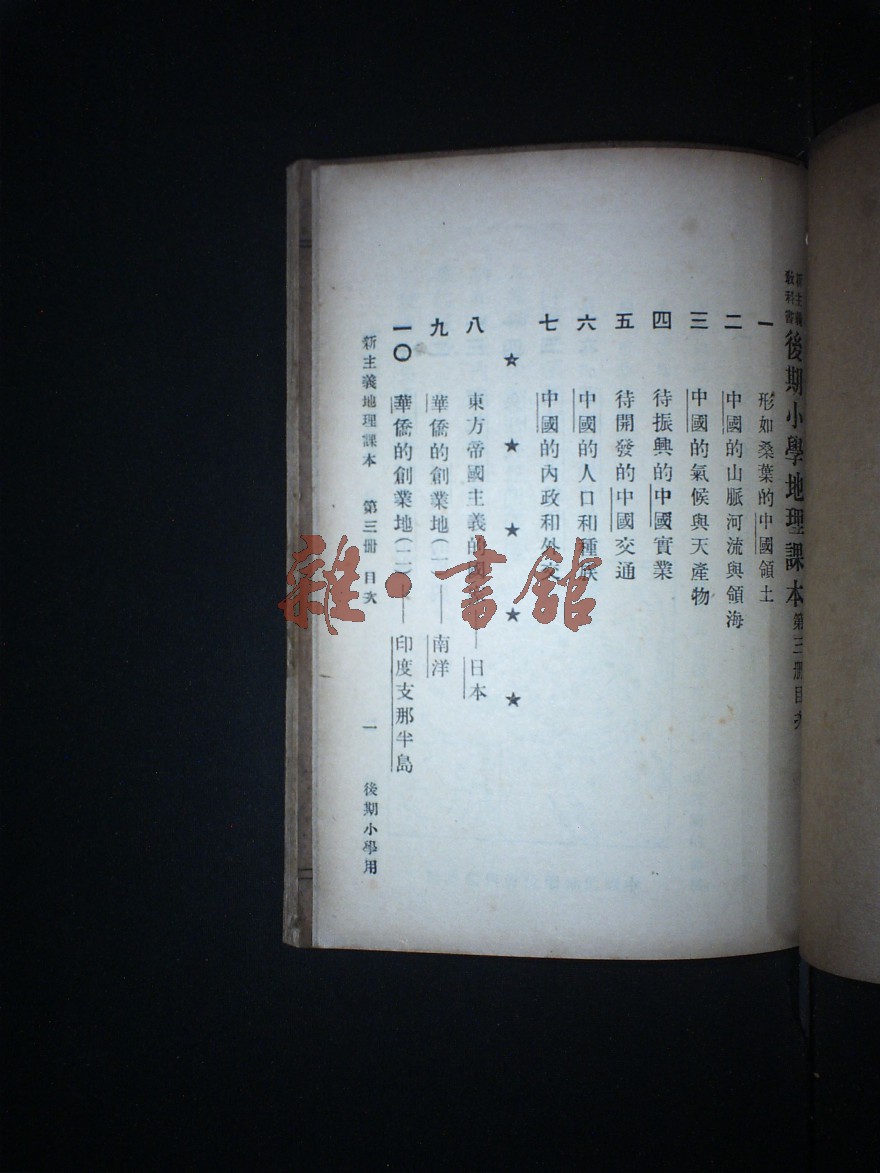 新主義教科書 後期小學地理課本 第三册目次
一 形如桑葉的中國領土
二 中國的山脈河流與領海
三 中國的氣候與天產物
四 待振興的中國實業
五 待開發的中國交通
六 中國的人口和種族
七 中國的內政和外交
★ ★ ★ ★ ★
八 東方帝國主義的國——日本
九 華僑的創業地(一)——南洋
一〇 華僑的創業地(二)——印度支那半島
新主義地理課本 第三册 目次 一 後期小學用
雜·書館